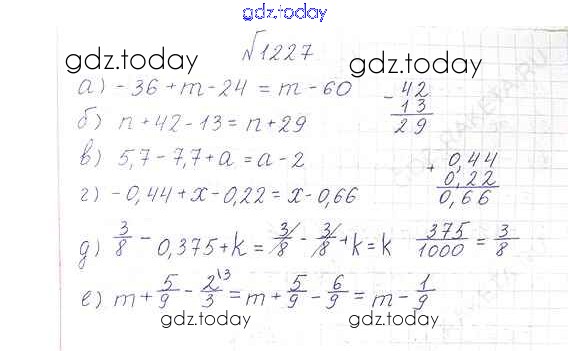 gdz.today
№1227
gdz.today
gdz.today
а) -36 + m - 24 = m - 60
б) n + 42 - 13 = n + 29
- 42
13
29
в) 5,7 - 7,7 + a = a - 2
г) -0,44 + x - 0,22 = x - 0,66
+ 0,44
0,22
0,66
д) 3/8 - 0,375 + k = 3/8 - 3/8 + k = k 375/1000 = 3/8
е) m + 5/9 - 2\3/3 = m + 5/9 - 6/9 = m - 1/9
gdz.today
gdz.today